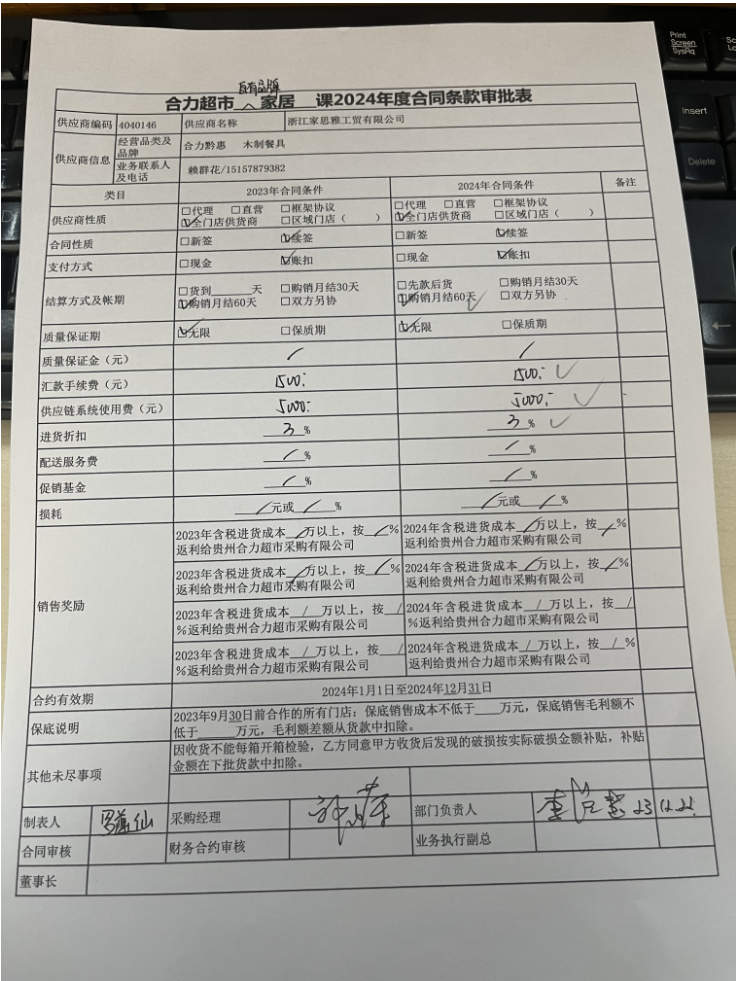 自有品牌
合力超市 家居 课2024年度合同条款审批表
供应商编码 4040146 供应商名称 浙江家思雅工贸有限公司
供应商信息 经营品类及品牌 合力黔惠 木制餐具
业务联系人及电话 赖群花/15157879382
类目 2023年合同条件 2024年合同条件 备注
供应商性质 □代理 □直营 □框架协议 ☑全门店供货商 □区域门店（ ） □代理 □直营 □框架协议 ☑全门店供货商 □区域门店（ ）
合同性质 □新签 ☑续签 □新签 ☑续签
支付方式 □现金 ☑账扣 □现金 ☑账扣
结算方式及帐期 □货到____天 □购销月结30天 ☑购销月结60天 □双方另协 □先款后货 □购销月结30天 ☑购销月结60天 □双方另协
质量保证期 ☑无限 □保质期 ☑无限 □保质期
质量保证金（元） / /
汇款手续费（元） 1500.- 1500.- ✓
供应链系统使用费（元） 5000.- 5000.- ✓
进货折扣 3% 3% ✓
配送服务费 /% /%
促销基金 /% /%
损耗 /元或/% /元或/%
销售奖励
2023年含税进货成本/万以上，按/% 2024年含税进货成本/万以上，按/%
返利给贵州合力超市采购有限公司 返利给贵州合力超市采购有限公司
2023年含税进货成本/万以上，按/% 2024年含税进货成本/万以上，按/%
返利给贵州合力超市采购有限公司 返利给贵州合力超市采购有限公司
2023年含税进货成本/万以上，按/ 2024年含税进货成本/万以上，按/
%返利给贵州合力超市采购有限公司 %返利给贵州合力超市采购有限公司
2023年含税进货成本/万以上，按/ 2024年含税进货成本/万以上，按/%
%返利给贵州合力超市采购有限公司 返利给贵州合力超市采购有限公司
合约有效期 2024年1月1日至2024年12月31日
保底说明 2023年9月30日前合作的所有门店：保底销售成本不低于____万元，保底销售毛利额不
低于______万元，毛利额差额从货款中扣除。
其他未尽事项 因收货不能每箱开箱检验，乙方同意甲方收货后发现的破损按实际破损金额补贴，补贴
金额在下批货款中扣除。
制表人 采购经理 部门负责人 23.12.22
合同审核 财务合约审核 业务执行副总
董事长
Print
Screen
SysRq
Insert
Delete